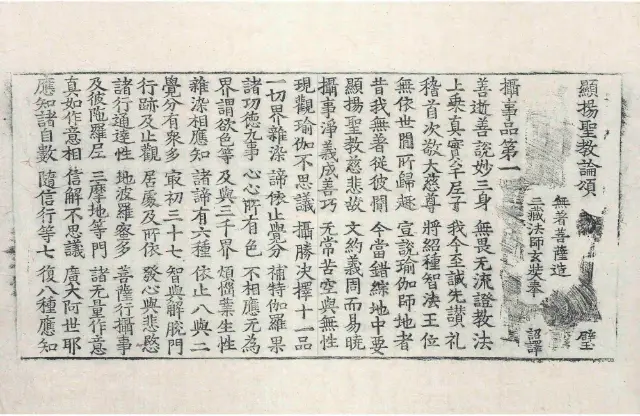 顯揚聖教論頌 璧
無着菩薩造
三藏法師玄奘奉 詔譯
攝事品第一
善逝善說妙三身 無畏无流證教法
上乘真實牟尼子 我今至誠先讃礼
稽首次敬大慈尊 將紹種智法王位
無依世間所歸趣 宣說瑜伽師地者
昔我無著從彼聞 今當錯綜地中要
顯揚聖教慈悲故 文約義周而易曉
攝事淨義成善巧 无常苦空與無性
現觀瑜伽不思議 攝勝决擇十一品
一切界雜染 諦依止覺分 補特伽羅果
諸功德九事 心心所有色 不相應无為
界謂欲色等 及與三千界 煩惱業生性
雜染相應知 諸諦有六種 依止八與二
覺分有衆多 最初三十七 智與解脫門
行跡及止觀 居處及所依 發心與悲愍
諸行通達性 地波羅蜜多 菩薩行攝事
及彼陁羅尼 三摩地等門 諸无量作意
真如作意相 信解不思議 廣大阿世耶
應知諸自數 隨信行等七 復八種應知